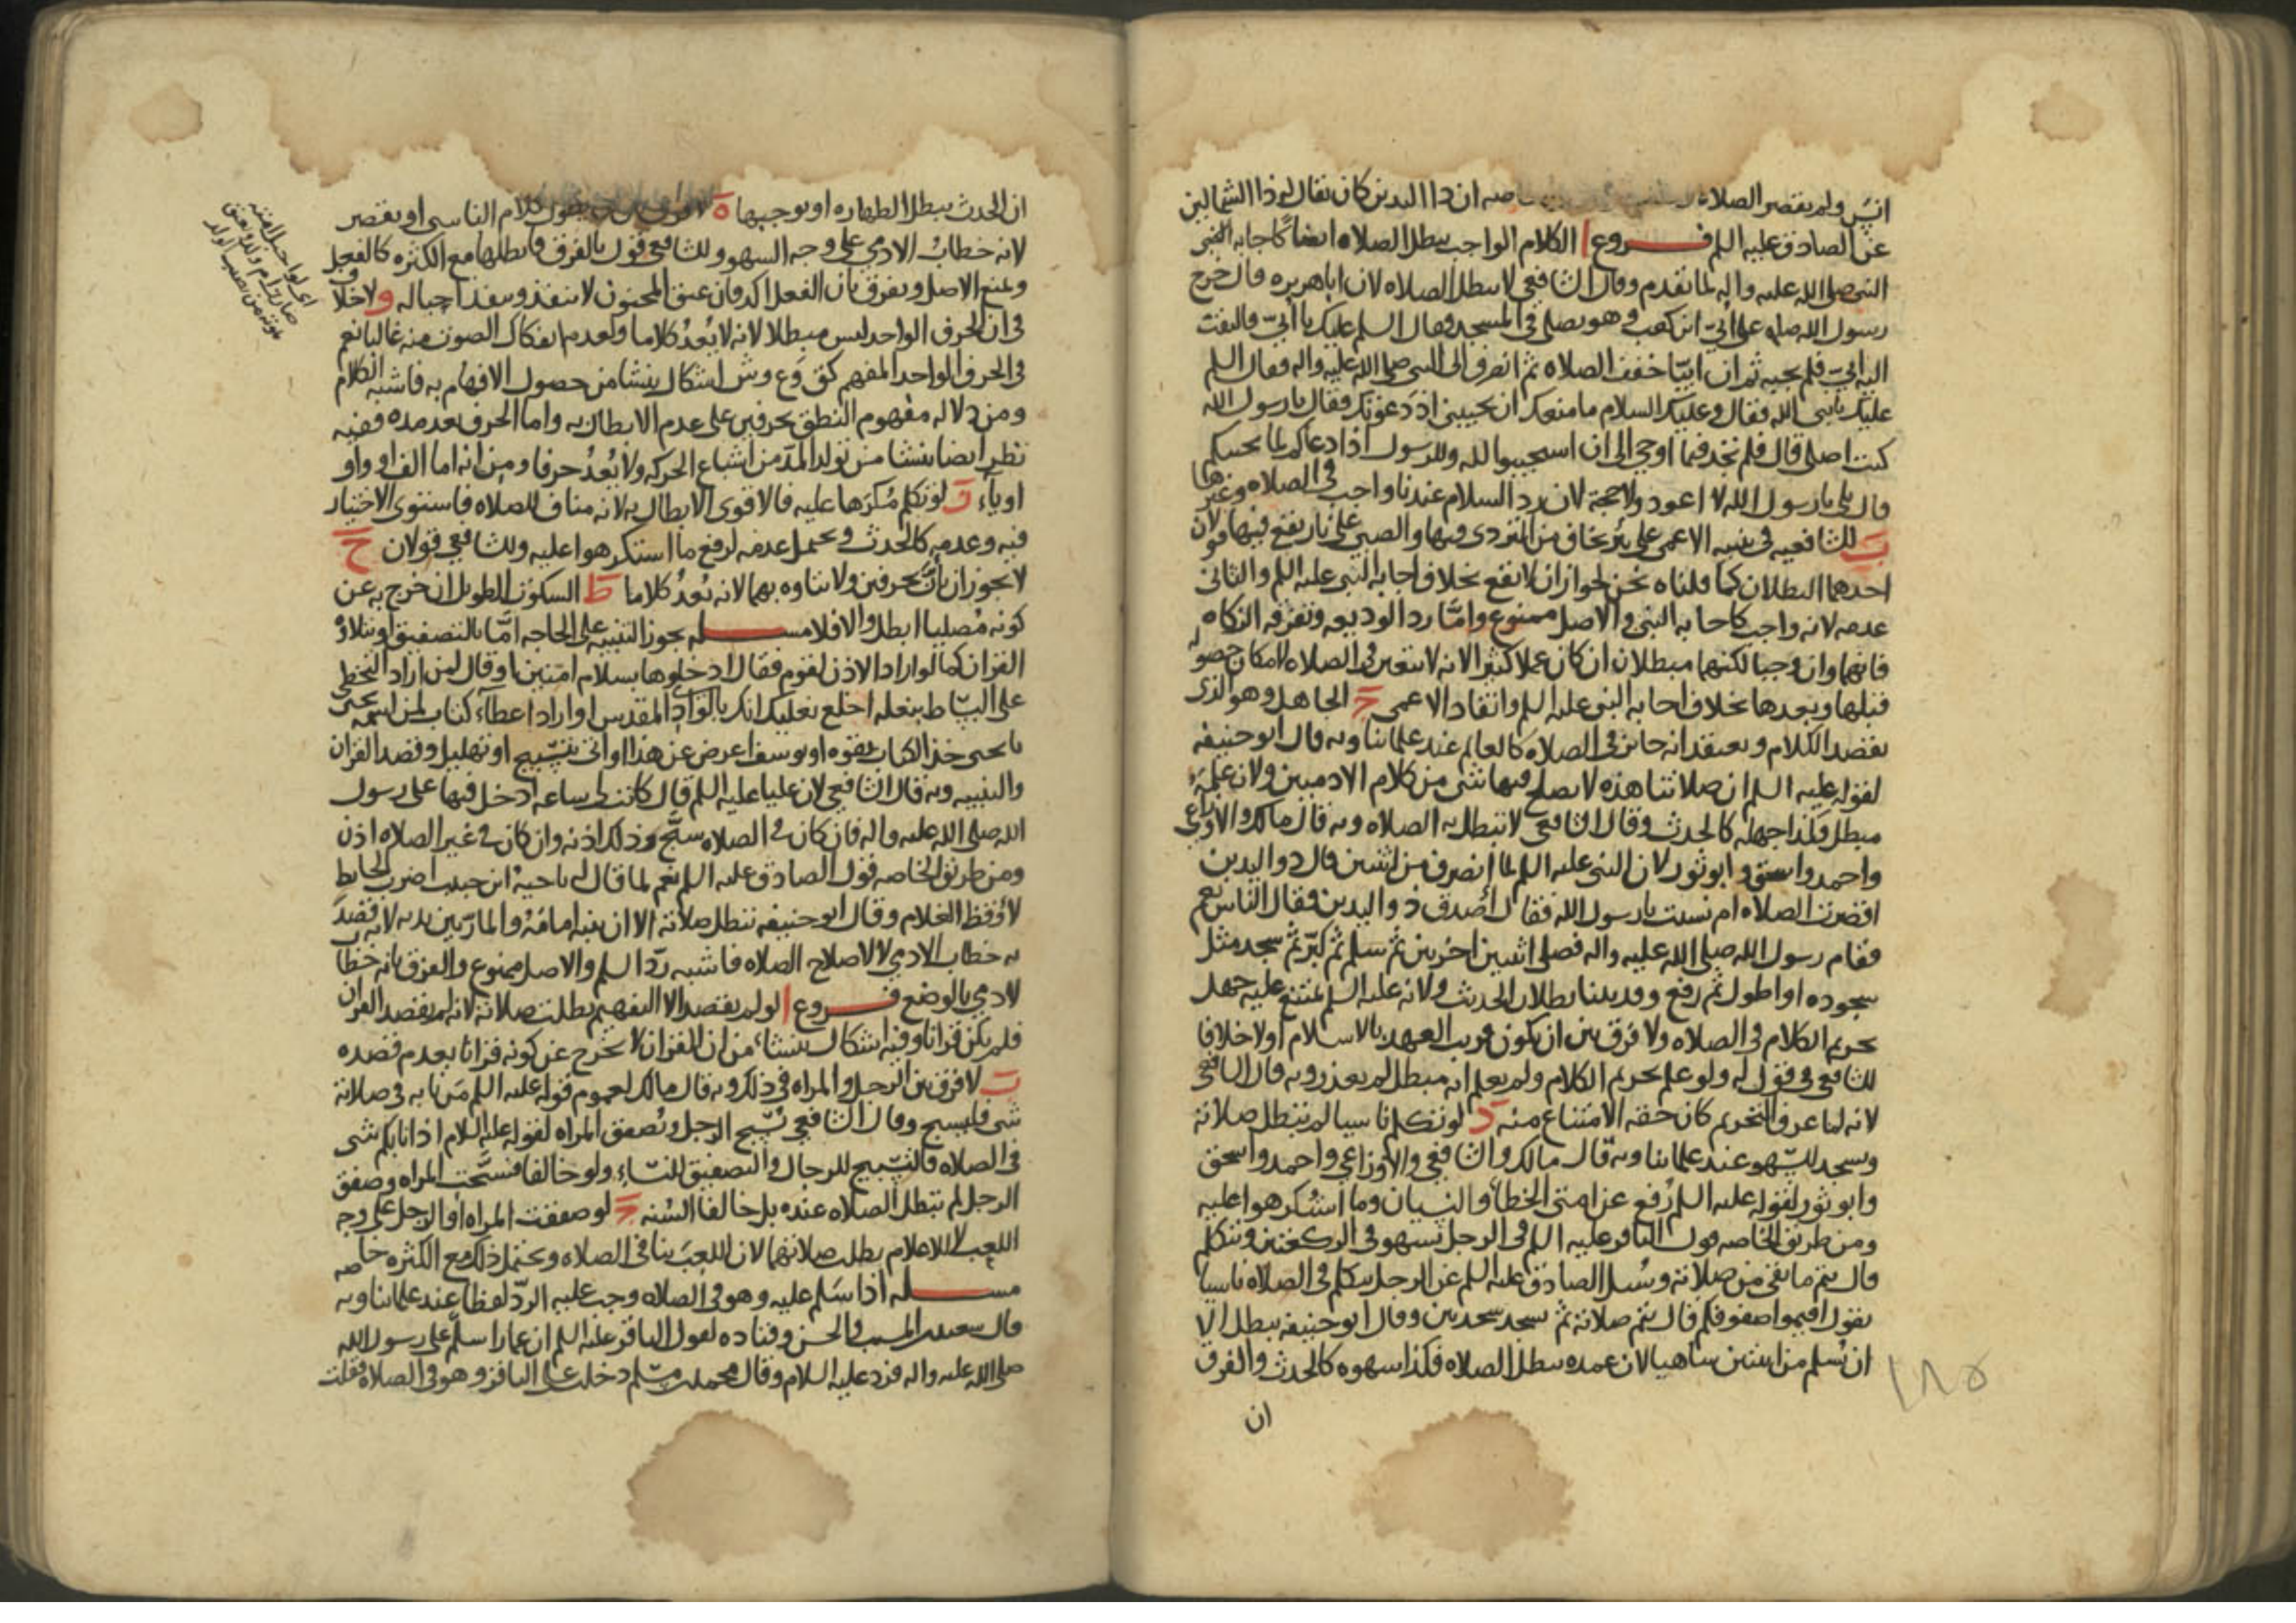 انس ولم يقصر الصلاه ان ذا اليدين كان يقال له ذا الشمالين
عن الصادق عليه السلم فروع ا الكلام الواجب يبطل الصلاه ايضا كاجابه النبي
النبي صلى الله عليه واله لما تقدم وقال الشافعي لا يبطل الصلاه لان ابا هريره قال خرج
رسول الله صلى على ابيّ ابن كعب وهو يصلي في المسجد وقال السلم عليك يا ابيّ فالتفت
اليه ابيّ فلم يجبه ثم ان ابيّا خفف الصلاه ثم انصرف الى النبي صلى الله عليه واله فقال السلم
عليك يا نبي الله فقال وعليك السلام ما منعك ان تجيبني اذ دعوتك فقال يا رسول الله
كنت اصلي قال فلم تجد فيما اوحي الي ان استجيبوا لله وللرسول اذا دعاكم لما يحييكم
قال بلى يا رسول الله لا اعود ولا حجة لان رد السلام عندنا واجب في الصلاه وغيرها
ب للشافعيه في تنبيه الاعمى على بئر يخاف من التردي فيها والصبي على نار يقع فيها قولان
احدهما البطلان كما قلناه نحن لجواز ان لا يقع بخلاف اجابه النبي عليه السلم والثاني
عدمه لانه واجب كاجابه النبي والاصل ممنوع وامّا رد الوديعه وتفرقه الزكاه
فانهما وان وجبا لكنهما مبطلان ان كان عملا كثيرا لانه لا يتعين في الصلاه لامكان حصوله
قبلها وبعدها بخلاف اجابه النبي عليه السلم وانقاد الاعمى ج الجاهل وهو الذي
يقصد الكلام ويعتقد انه جائز في الصلاه كالعالم عند علمائنا وبه قال ابو حنيفه
لقوله عليه السلم ان صلاتنا هذه لا يصلح فيها شي من كلام الادميين ولان علمه
مبطل فكذا جهله كالحدث وقال الشافعي لا تبطل به الصلاه وبه قال مالك والاوزاعي
واحمد واسحق وابو ثور لان النبي عليه السلم لما انصرف من اثنين قال ذو اليدين
اقصرت الصلاه ام نسيت يا رسول الله فقال أصدق ذو اليدين فقال الناس نعم
فقام رسول الله صلى الله عليه واله فصلى اثنين اخريين ثم سلم ثم كبّر ثم سجد مثل
سجوده او اطول ثم رفع وقد بينا بطلان الحديث ولانه عليه السلم يمتنع عليه جهل
تحريم الكلام في الصلاه ولا فرق بين ان يكون قريب العهد بالاسلام اولا خلافا
للشافعي في قول له ولو علم تحريم الكلام ولم يعلم انه مبطل لم يعذر وبه قال الشافعي
لانه لما عرف التحريم كان حقه الامتناع منه د لو تكلم ناسيا لم تبطل صلاته
ويسجد للسّهو عند علمائنا وبه قال مالك والشافعي والاوزاعي واحمد واسحق
وابو ثور لقوله عليه السلم رُفع عن امتي الخطأ والنسيان وما استُكرهوا عليه
ومن طريق الخاصه قول الباقر عليه السلم في الرجل يسهو في الركعتين ويتكلم
قال يتم ما بقي من صلاته وسُئل الصادق عليه السلم عن الرجل يتكلم في الصلاه ناسيا
يقول اقيموا صفوفكم قال يتم صلاته ثم يسجد سجدتين وقال ابو حنيفه يبطل الا
ان يُسلم من اثنين ساهيا لان عمده يبطل الصلاه فكذا سهوه كالحدث والفرق
ان
١٨٥
ان الحدث يبطل الطهاره او يوجبها ه لا فرق بين ان يطول كلام الناسي او يقصر
لانه خطابُ الادمي على وجه السهو وللشافعي قول بالفرق فابطلها مع الكثره كالفعل
ونمنع الاصل ويفرق بان الفعل اكد فان عتق المجنون لا ينفذ وينفذ احباله و لا خلاف
في ان الحرف الواحد ليس مبطلا لانه لا يُعدُ كلاما ولعدم انفكاك الصوت منه غالبا نعم
في الحرف الواحد المفهم كقِ وَعِ وشِ اشكال ينشا من حصول الافهام به فاشبه الكلام
ومن دلاله مفهوم النطق بحرفين على عدم الابطال به واما الحرف بعد مده ففيه
نظر ايضا ينشا من تولد المدّ من اشباع الحركه ولا يُعدُ حرفا ومن انه اما الف او واو
او ياء ز لو تكلم مُكرَها عليه فالاقوى الابطال به لانه مناف للصلاه فاستوى الاختيار
فيه وعدمه كالحدث ويحتمل عدمه لرفع ما استكرهوا عليه وللشافعي قولان ح
لا يجوز ان يانَّ بحرفين ولا يتاوه بهما لانه يُعدُ كلاما ط السكوت الطويل ان خرج به عن
كونه مُصليا ابطل والا فلا مسله يجوز التنبيه على الحاجه امَّا بالتصفيق او تلاوه
القران كما لو اراد الاذن لقوم فقال ادخلوها بسلام امنين او قال لمن اراد التخطي
على البسّاط بنعله اخلع نعليك انك بالوادِ المقدس او اراد اعطاء كتاب لمن اسمه يحيى
يا يحيى خذ الكتاب بقوه او يوسف اعرض عن هذا او اتى بتسّبيح او تهليل وقصد القران
والتنبيه وبه قال الشافعي لان عليا عليه السلم قال كانت لي ساعه ادخل فيها على رسول
الله صلى الله عليه واله فان كان في الصلاه سبّح وذلك اذنه وان كان في غير الصلاه اذن
ومن طريق الخاصه قول الصادق عليه السلم نعم لما قال له ناحيهُ ابن حبيب اضرب الحايط
لأوقظ الغلام وقال ابو حنيفه تبطل صلاته الا ان ينبه امامَهُ والمارّ بين يديه لانه قصدَ
به خطاب الادمي لا لاصلاح الصلاه فاشبه ردّ السلم والاصل ممنوع والفرق بانه خطاب
لادمي بالوضع فروع ا لو لم يقصد الا التفهيم بطلت صلاته لانه لم يقصد القران
فلم يكن قرانا وفيه اشكال ينشا من ان القران لا يخرج عن كونه قرانا بعدم قصده
ب لا فرق بين الرجل والمراه في ذلك وبه قال مالك لعموم قوله عليه السلم مَن نابه في صلاته
شي فليسبح وقال الشافعي يُسّبح الرجل وتُصفق المراه لقوله عليه السلام اذا نابكم شي
في الصلاه فالتسّبيح للرجال والتصفيق للنساء ولو خالفا فسبَّحت المراه وصفق
الرجل لم تبطل الصلاه عنده بل خالفا السُنه ج لو صفقت المراه او الرجل على وجه
اللعب لا للاعلام بطلت صلاتهما لان اللعبَ ينافي الصلاه ويحتمل ذلك مع الكثره خاصه
مسله اذا سَلم عليه وهو في الصلاه وجب عليه الردّ لفظا عند علمائنا وبه
قال سعيد بن المسيب والحسن وقتاده لقول الباقر عليه السلم ان عمارا سلم على رسول الله
صلى الله عليه واله فردّ عليه السلام وقال محمد بن مسّلم دخلت على الباقر وهو في الصلاه فقلت